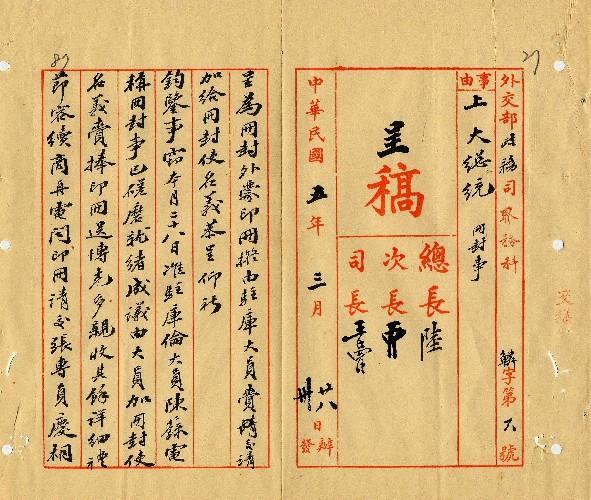 外交部政務司界務科
辦字第六號
事由
上大總統 冊封事
呈
稿
總長 陸
次長
司長
中華民國五年三月
廿八日辦
發
呈為冊封外蒙印冊擬由駐庫大員賫
加給冊封使名義恭呈仰祈
鈞鑒事竊本月二十八准駐庫倫大員陳籙電
稱冊封事已磋磨就緒成議由大員加冊封使
名義賫捧印冊送博克多親收其餘詳細禮
節容續商再電聞印冊請交張專員慶桐
27